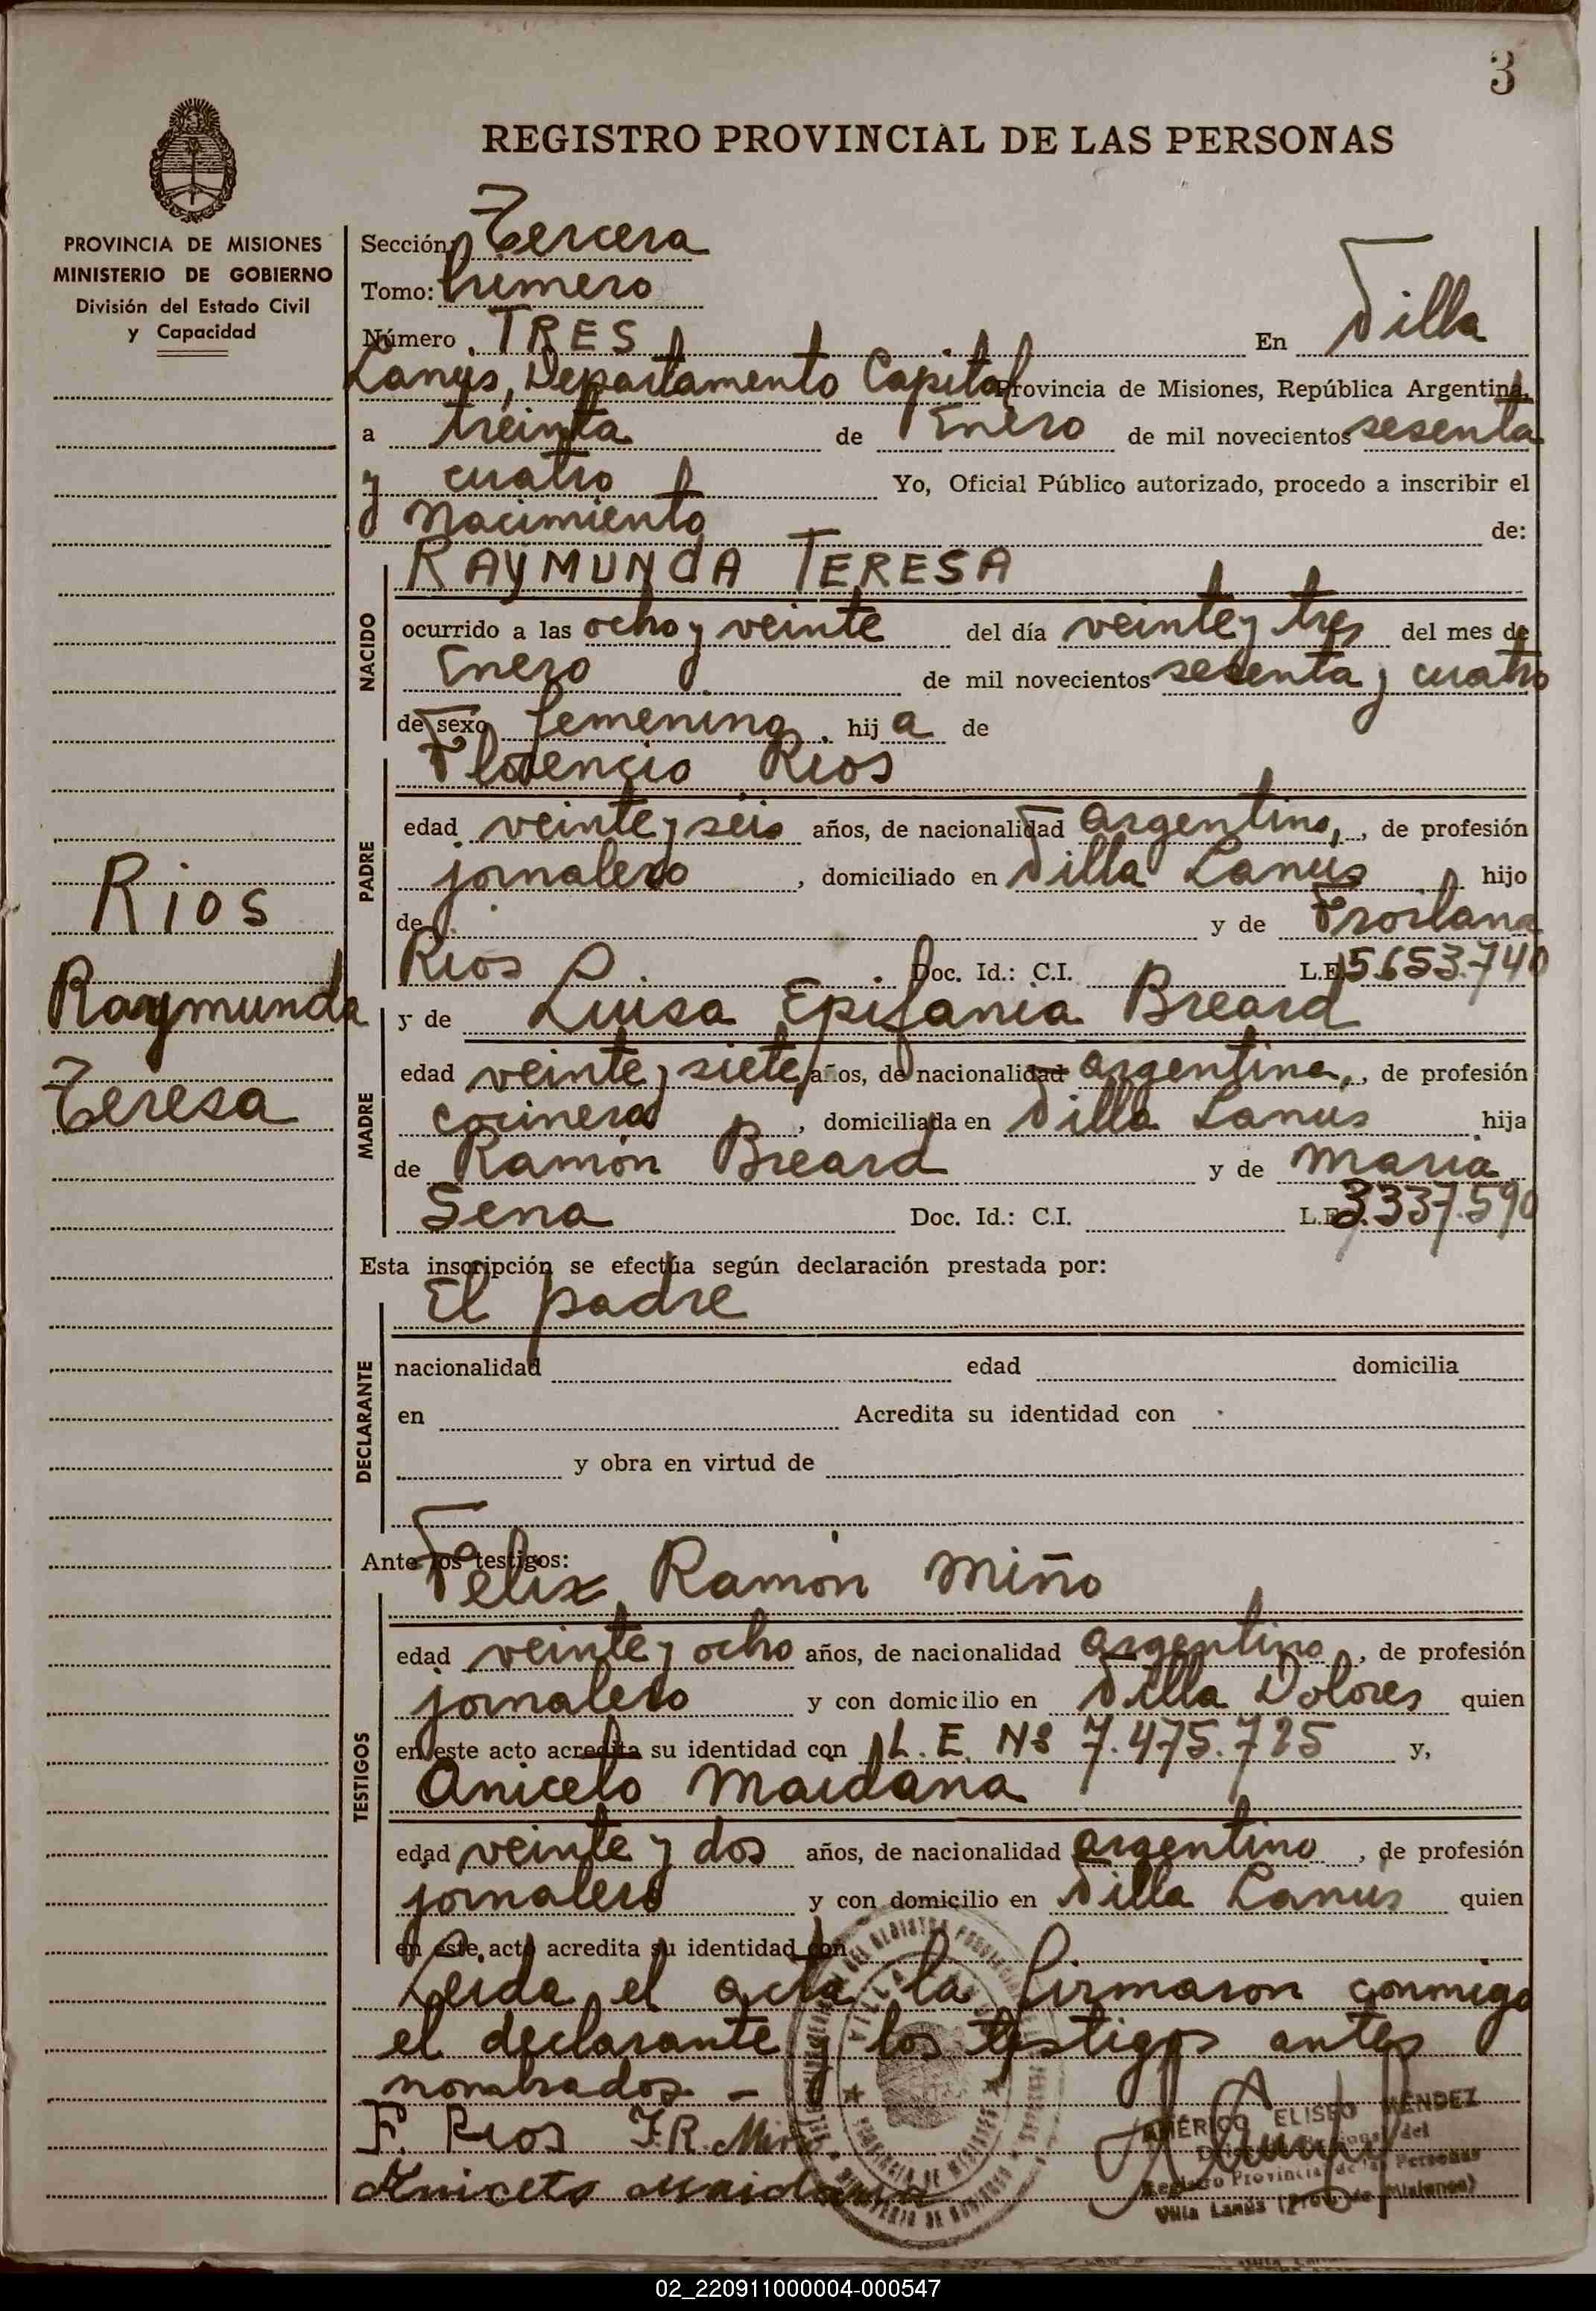 3
REGISTRO PROVINCIAL DE LAS PERSONAS
PROVINCIA DE MISIONES
MINISTERIO DE GOBIERNO
División del Estado Civil
y Capacidad
Rios
Raymunda
Teresa
Sección: Tercera
Tomo: Primero
Número TRES En Villa
Lanús, Departamento Capital Provincia de Misiones, República Argentina,
a treinta de Enero de mil novecientos sesenta
y cuatro Yo, Oficial Público autorizado, procedo a inscribir el
Nacimiento de:
NACIDO
RAYMUNdA TERESA
ocurrido a las ocho y veinte del día veinte y tres del mes de
Enero de mil novecientos sesenta y cuatro
de sexo femenino, hija de
PADRE
Florencio Rios
edad veinte y seis años, de nacionalidad argentino, de profesión
jornalero, domiciliado en Villa Lanús hijo
de y de Froilana
Rios Doc. Id.: C.I. L.E. 5.653.740
MADRE
y de Luisa Epifania Breard
edad veinte y siete años, de nacionalidad argentina, de profesión
cocinera, domiciliada en Villa Lanús hija
de Ramón Breard y de Maria
Sena Doc. Id.: C.I. L.E. 3.337.590
Esta inscripción se efectúa según declaración prestada por:
DECLARANTE
El padre
nacionalidad edad domicilia
en Acredita su identidad con
y obra en virtud de
Ante los testigos:
TESTIGOS
Felix Ramón Miño
edad veinte y ocho años, de nacionalidad argentino, de profesión
jornalero y con domicilio en Villa Dolores quien
en este acto acredita su identidad con L.E. Nº 7.475.725 y,
Aniceto Maidana
edad veinte y dos años, de nacionalidad argentino, de profesión
jornalero y con domicilio en Villa Lanús quien
en este acto acredita su identidad con
Leida el acta la firmaron conmigo
el declarante y los testigos antes
nombrados. -
F. Rios F.R. Miño
Aniceto Maidana
AMÉRICO ELISEO MÉNDEZ
del
Registro Provincial de las Personas
Villa Lanús (Prov. de Misiones)
02_220911000004-000547